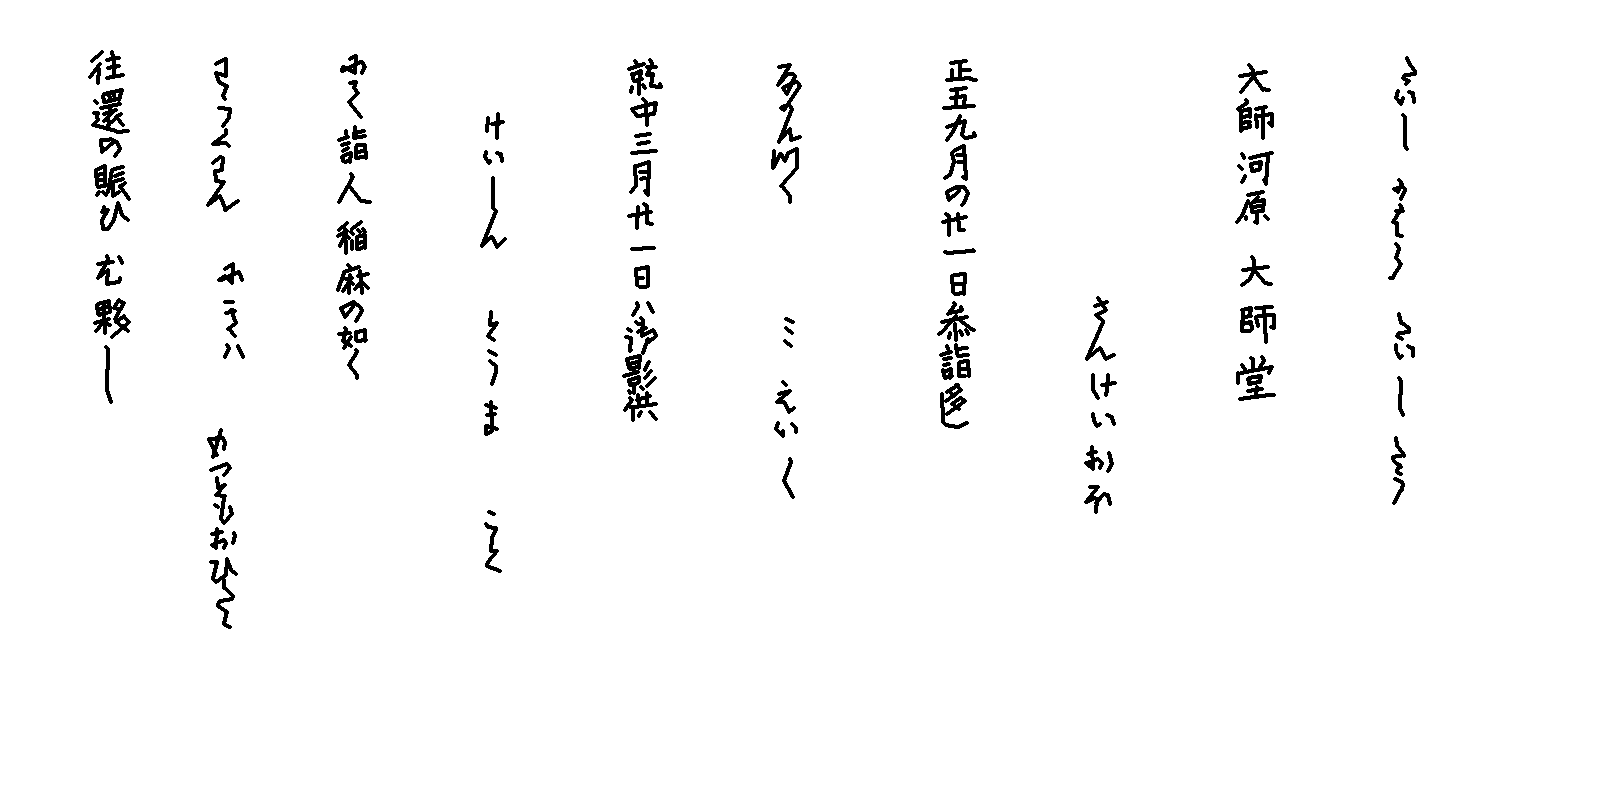 たいし かはら たいし たう
大師河原 大師堂
さんけいおほ
正五九月の廿一日叅詣多し
なかんつく ミえいく
就中三月廿一日ハ御影供
けいしん とうま ことく
にて詣人稲麻の如く
わうくわん にきハ もつともおひたゝ
往還の賑ひ尤夥し